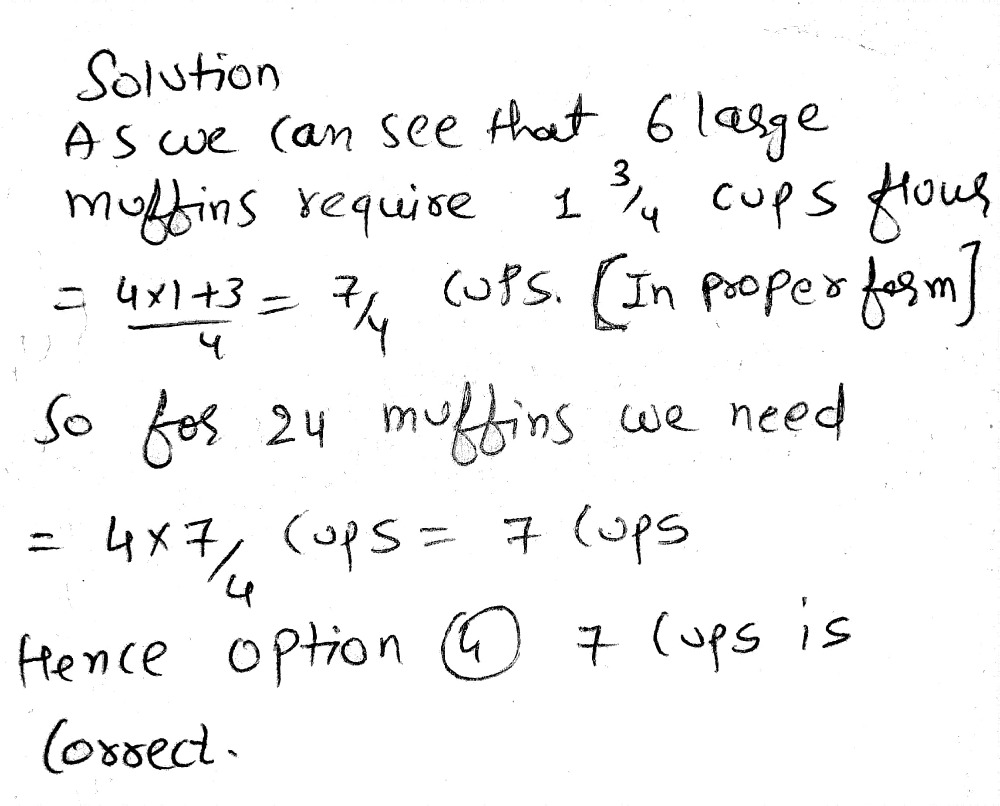 Solution
As we can see that 6 large
muffins require 1 3/4 cups flour
= 4x1+3/4 = 7/4 cups. [In proper form]
So for 24 muffins we need
= 4x7/4 cups = 7 cups
Hence option ④ 7 cups is
Correct.